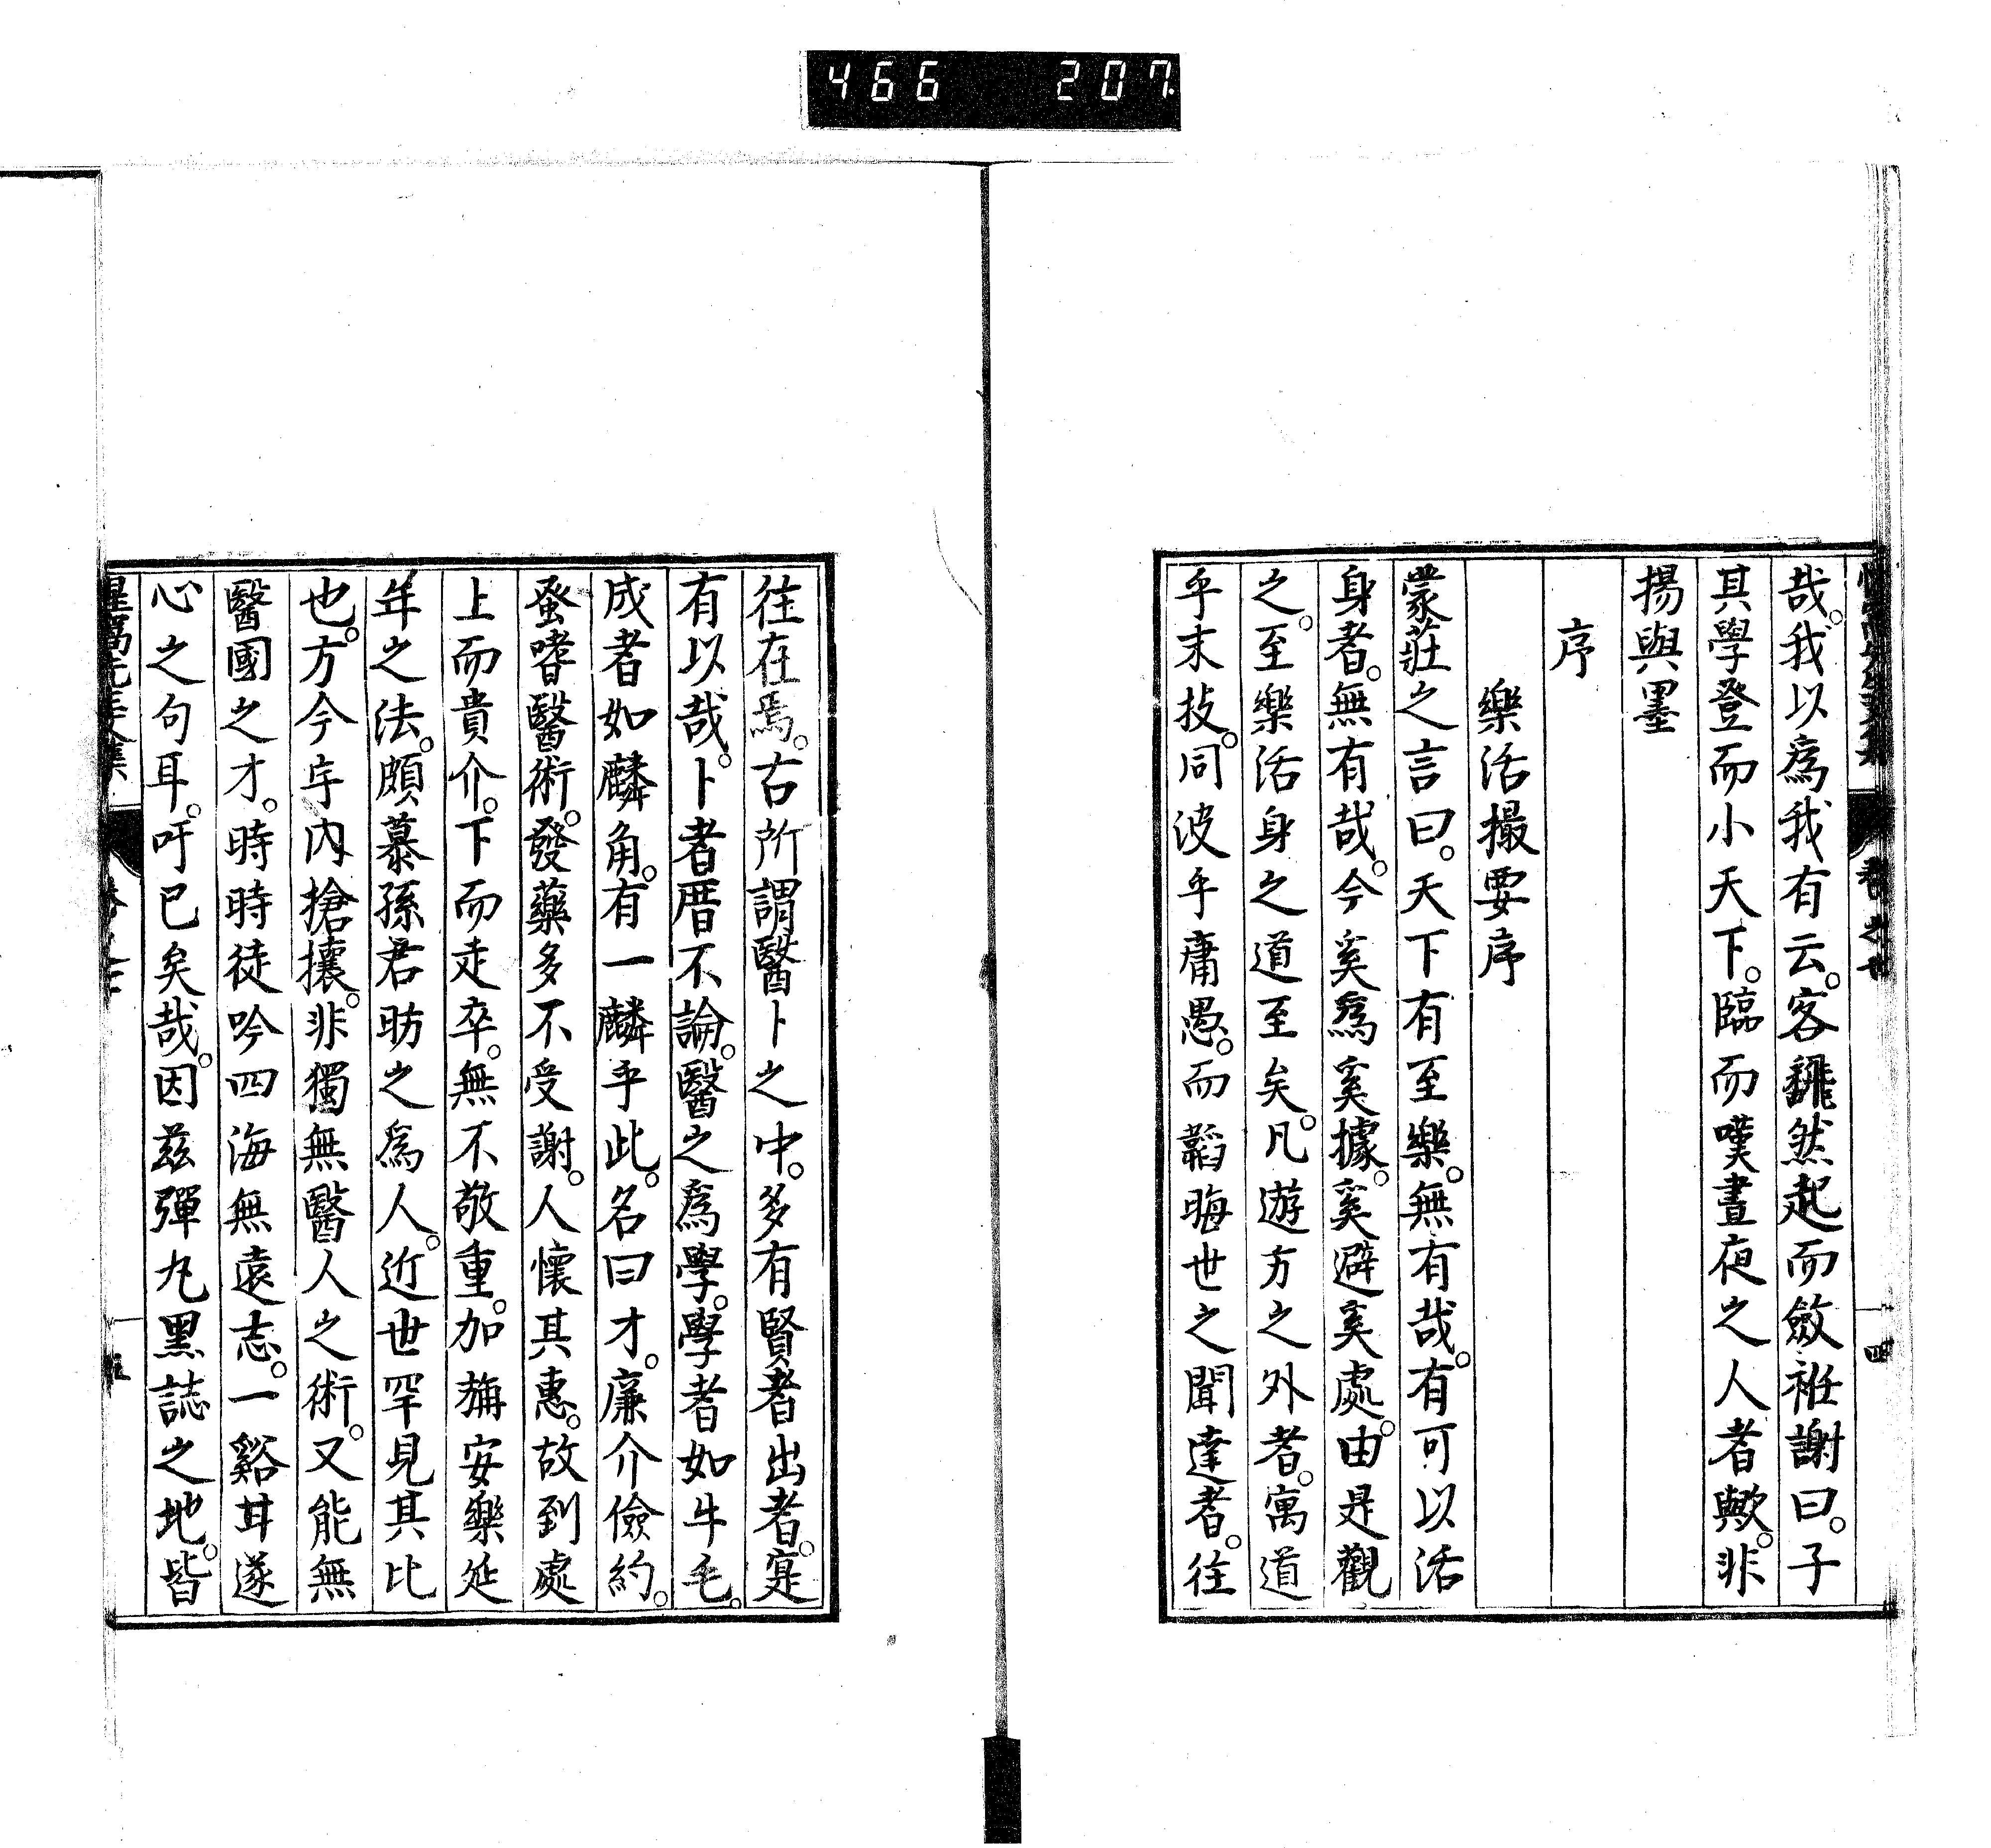 466 207.
哉。我以爲我有云。客
然起而斂袵謝曰。子
其學登而小天下。臨而嘆晝夜之人者歟。非
揚與墨
序
樂活撮要序
蒙莊之言曰。天下有至樂。無有哉。有可以活
身者。無有哉。今奚爲奚據。奚避奚處。由是觀
之。至樂活身之道至矣。凡遊方之外者。寓道
乎末技。同波乎庸愚。而韜晦世之聞達者。往
往在焉。古所謂醫卜之中。多有賢者出者。寔
有以哉。卜者厝不論。醫之爲學。學者如牛毛。
成者如麟角。有一麟乎此。名曰才。廉介儉約。
蚤嗜醫術。發藥多不受謝。人懷其惠。故到處
上而貴介。下而走卒。無不敬重。加旃安樂延
年之法。頗慕孫君昉之爲人。近世罕見其比
也。方今宇内搶攘。非獨無醫人之術。又能無
醫國之才。時時徒吟四海無遠志。一谿甘遂
心之句耳。吁已矣哉。因茲彈丸黑誌之地。皆